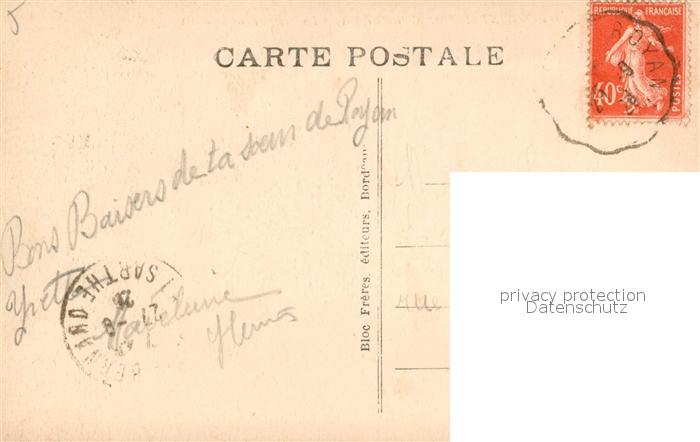 5
CARTE POSTALE
RÉPUBLIQUE FRANÇAISE
40c
POSTES
ROYAN
Bons Baisers de ta sœur de Royan
Yvette
SARTHE
Bloc Frères, éditeurs, Bordeaux
rue
privacy protection
Datenschutz